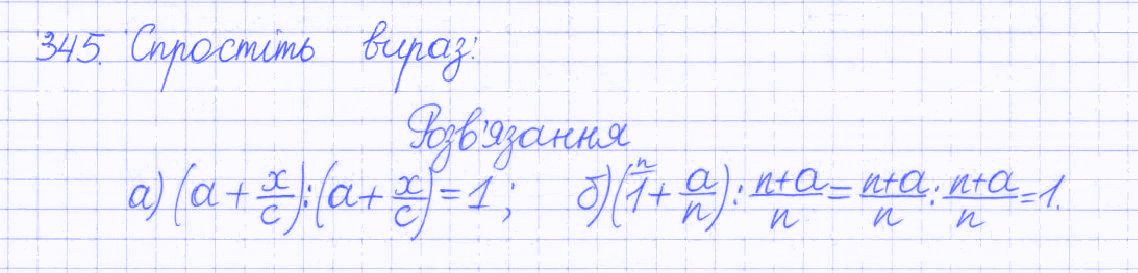 345. Спростіть вираз:
Розв'язання
а) (a + x/c) : (a + x/c) = 1; б) (1^n + a/n) : (n+a)/n = (n+a)/n : (n+a)/n = 1.